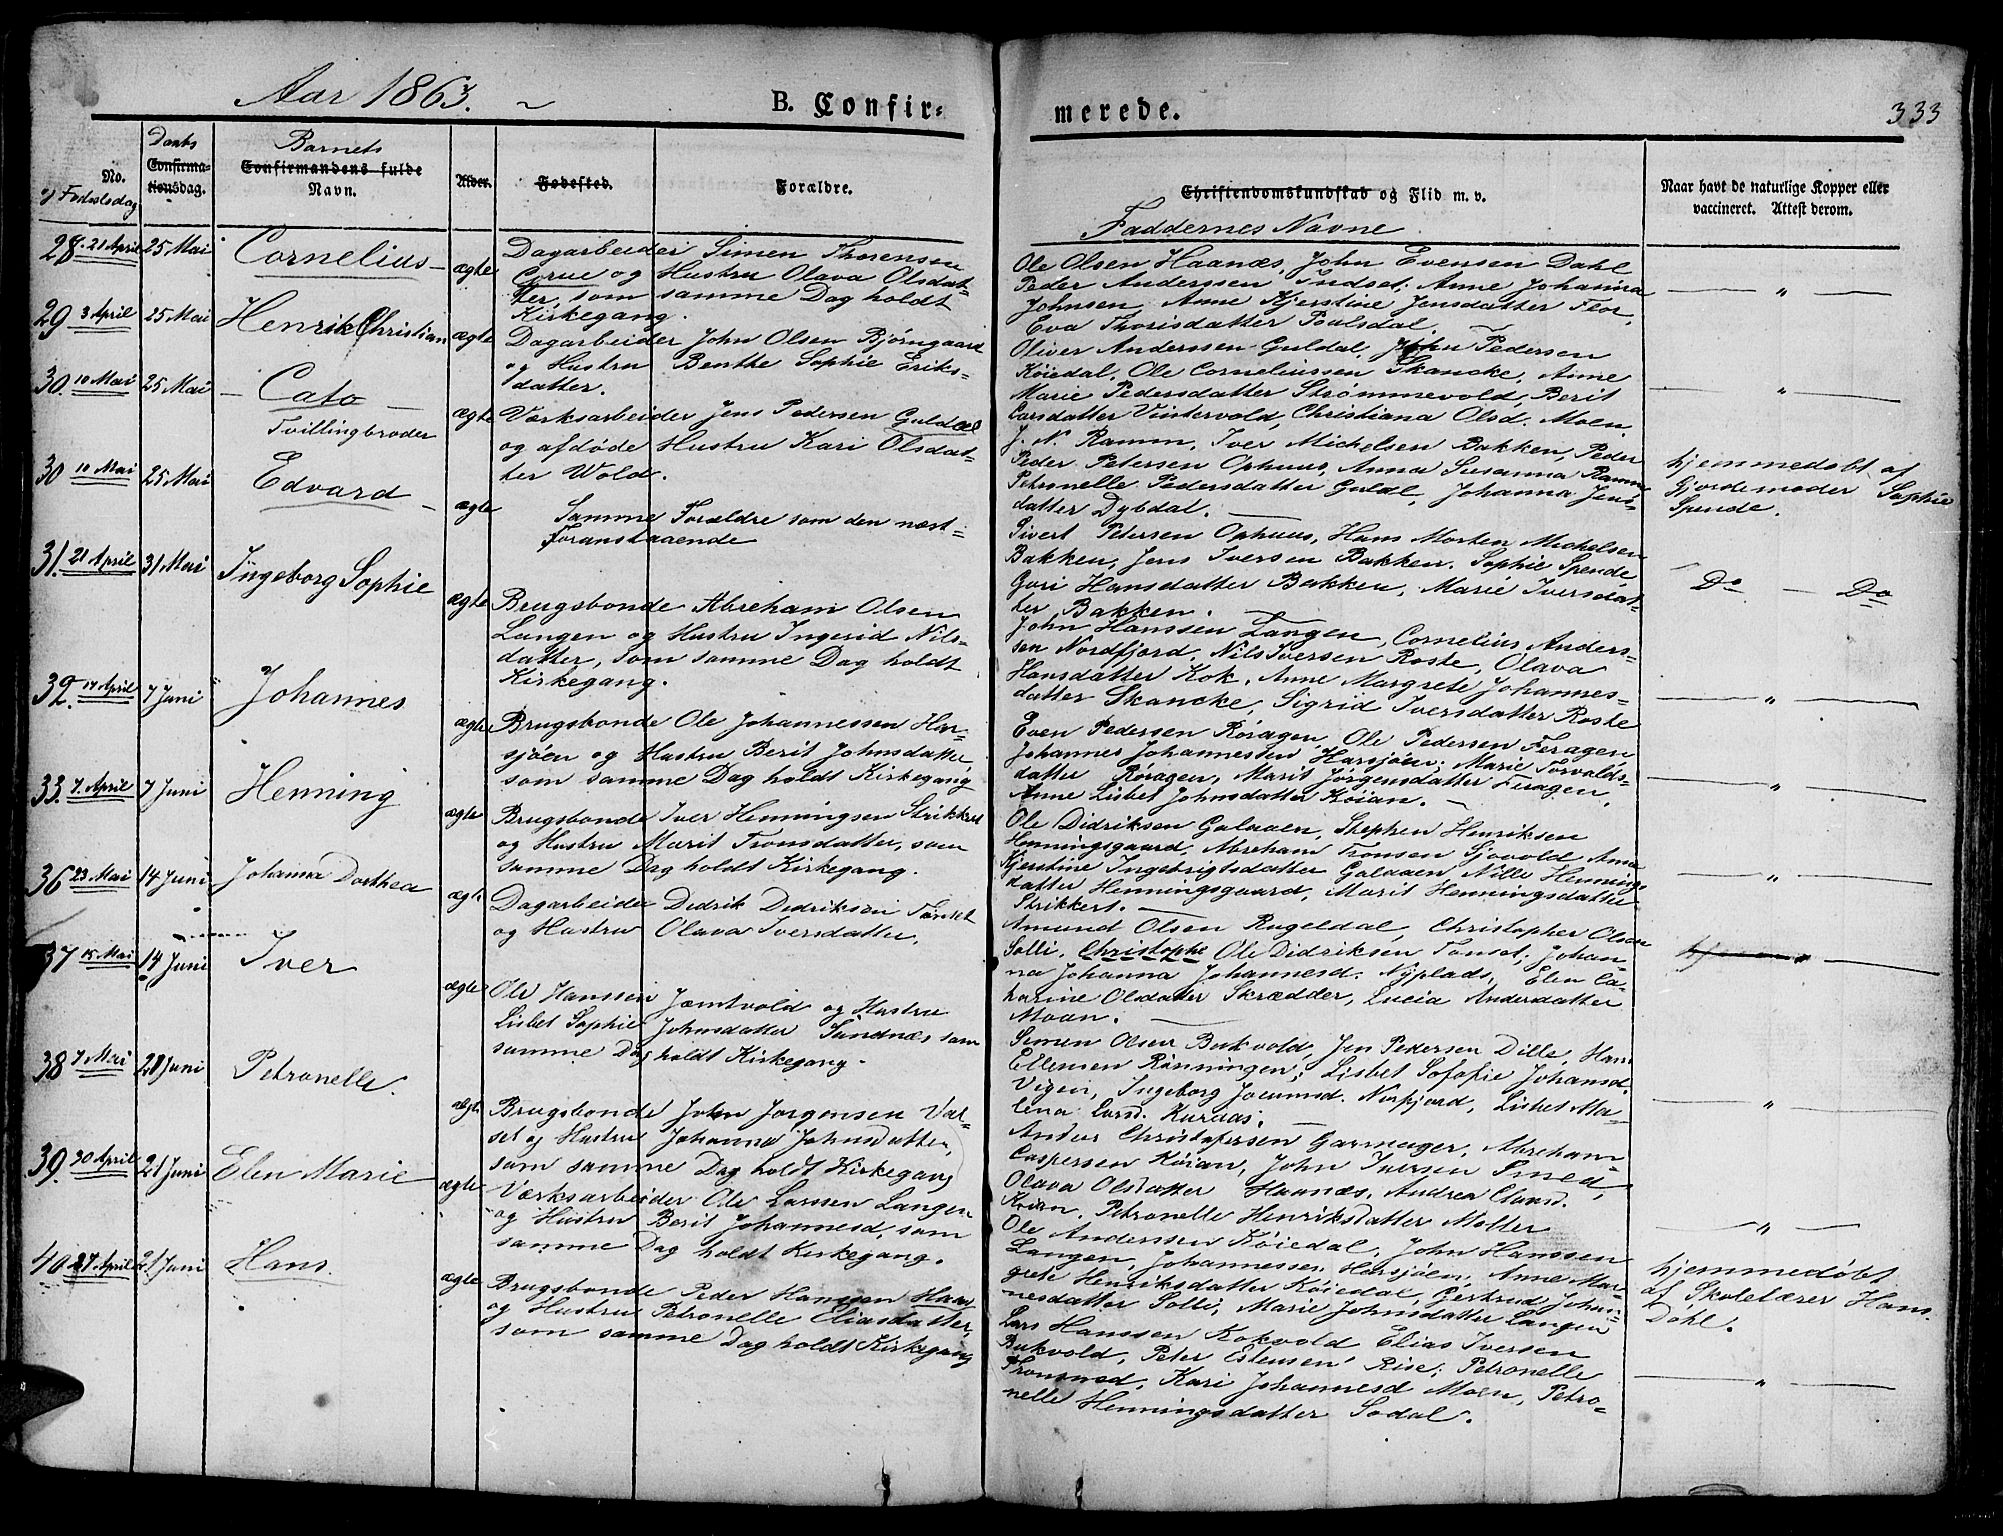 Aar 1863.
B. Confir=
merede.
333
No.
og Fødselsdag
Daabs
Confirma-
tionsdag.
Barnets
Confirmandens fulde
Navn.
Alder.
Fødested.
Forældre.
Christendomskundskab og Flid m. v.
Faddernes Navne
Naar havt de naturlige Kopper eller
vaccineret. Attest derom.
28. 21 April 25 Mai Cornelius ægte
Dagarbeider Simen Thoresen
Corue og Hustru Olava Olsdat-
ter, som samme Dag holdt
Kirkegang.
Ole Olsen Haanæs, John Evensen Dahl
Peder Anderssen Indset, Anne Johanna
Johnsen, Anne Kjerstine Jensdatter Flor,
Eva Thorisdatter Poulsdal.
29 3 April 25 Mai Henrik Christian ægte
Dagarbeider John Olsen Bjørngaard
og Hustru Benthe Sophie Eriks-
datter.
Oliver Anderssen Guldal, John Pedersen
Køiedal, Ole Corneliussen Skancke, Anne
Marie Pedersdatter Strømmevold, Berit
Larsdatter Vintervold, Christiana Olsd. Moen.
30. 10 Mai 25 Mai Cato ægte
Tvillingbroder
Værksarbeider Jens Pedersen Guldal
og afdøde Hustru Kari Olsdat-
ter Wold.
J. N. Ramm, Iver Michelsen Bakken, Peder
Peder Petersen Ophuus, Anna Susanna Ramm
Petronelle Pedersdatter Guldl, Johanna Jens-
datter Dybdal.
hjemmedøbt af
Gjordemoder Sophie
Spende.
30 10 Mai 25 Mai Edvard ægte
Samme Forældre som den næst-
Foranstaaende
Sivert Petersen Ophuus, Hans Morten Michelsen
Bakken, Jens Iversen Bakken, Sophie Spende,
Guri Hansdatter Bakken, Marie Iversdat-
ter Bakken.
Do — Do
31. 21 April 31 Mai Ingeborg Sophie ægte
Brugsbonde Abreham Olsen
Langen og Hustru Ingerid Nils-
datter, som samme Dag holdt
Kirkegang.
John Hanssen Langen, Cornelius Anders-
sen Nordfjord, Nils Iversen Roste, Olava
Hansdatter Kok, Anne Margrete Johannes-
datter Skancke, Sigrid Iversdatter Roste
32. 14 April 7 Juni Johannes ægte
Brugsbonde Ole Johannessen Har-
sjøen og Hustru Berit Johnsdatter
som samme Dag holdt Kirkegang
Even Pedersen Røragen, Ole Pedersen Feragen,
Johannes Johannessen Harsjøen, Marie Torvalds-
datter Røragen, Marit Jørgensdatter Feragen,
Anne Lisbet Johnsdatter Køian.
33. 7 April 7 Juni Henning ægte
Brugsbonde Iver Henningsen Strikkert
og Hustru Marit Tronsdatter, som
samme Dag holdt Kirkegang.
Ole Didriksen Galaaen, Stephen Henriksen
Henningsgaard, Abreham Tronsen Sjovold, Anne
Kjerstine Ingebrigtsdatter Galaaen, Nille Hennings-
datter Henningsgaard, Marit Henningsdatter
Strikkert.
36 23 Mai 14 Juni Johanna Dorthea ægte
Dagarbeider Didrik Didriksen Tønset
og Hustru Olava Iversdatter,
Amund Olsen Rugeldal, Christopher Olsen
Solli, Christophe Ole Didriksen Tonset, Johan-
na Johanna Johannesd. Nyplads, Elen Ca-
harine Olsdatter Skrædder, Lucia Andersdatter
Moan.
37 15 Mai 14 Juni Iver ægte
Ole Hanssen Jæmtvold og Hustru
Lisbet Sophie Johnsdatter Sundnæs som
samme Dag holdt Kirkegang.
Simen Olsen Bukvold, Jen Pedersen Dille, Hans
Ellensen Rønningen, Lisbet Sofofie Johansd.
Vigen, Ingeborg Joeumsd. Norfjord, Lisbet Ma-
lena Larsd. Kuraas.
38 7 Mai 21 Juni Petronelle. ægte
Brugsbonde John Jørgensen Val-
set og Hustru Johanna Johnsdatter,
som samme Dag holdt Kirkegang
Anders Christofersen Garmager, Abreham
Caspersen Køian, John Iversen Smed,
Olava Olsdatter Haanæs, Andrea Claasd.
Køien, Petronelle Henriksdatter Møller
39. 30 April 21 Juni Elen Marie ægte
Værksarbeider Ole Larsen Langen
og Hustru Berit Johannesd, som
samme Dag holdt Kirkegang.
Ole Anderssen Køiedal, John Hanssen
Langen, Johannessen Harsjøen, Anne Mar-
grete Henriksdatter Køiedal, Gertrud Johan-
nesdatter Solli, Marie Johnsdatter Langen
hjemmedøbt
af Skolelærer Hans
Dahl.
40 27 April 21 Juni Hans. ægte
Brugsbonde Peder Hanssen Haas
og Hustru Petronelle Eliasdatter,
som samme Dag holdt Kirkegang
Lars Hanssen Kokvold Elias Iversen
Bukvold, Peter Estensen Rise, Petronelle
Tronsned, Kari Johannesd Moen, Petro-
nelle Henningsdatter Sodal.